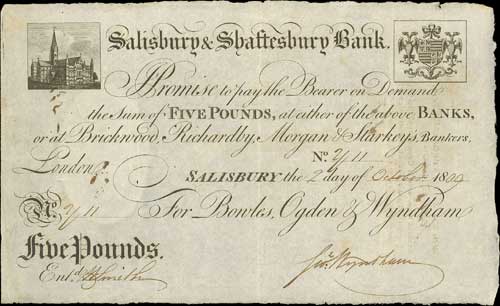 Salisbury & Shaftesbury Bank.
I Promise to pay the Bearer on Demand
the Sum of FIVE POUNDS, at either of the above BANKS,
or at Brickwood, Richardby, Morgan & Starkeys, Bankers,
London.
No. 2/11
SALISBURY the 2 day of October 1809
No. 2/11 For Bowles, Ogden & Wyndham
Five Pounds.
Entd. Smith Geo. Wyndham